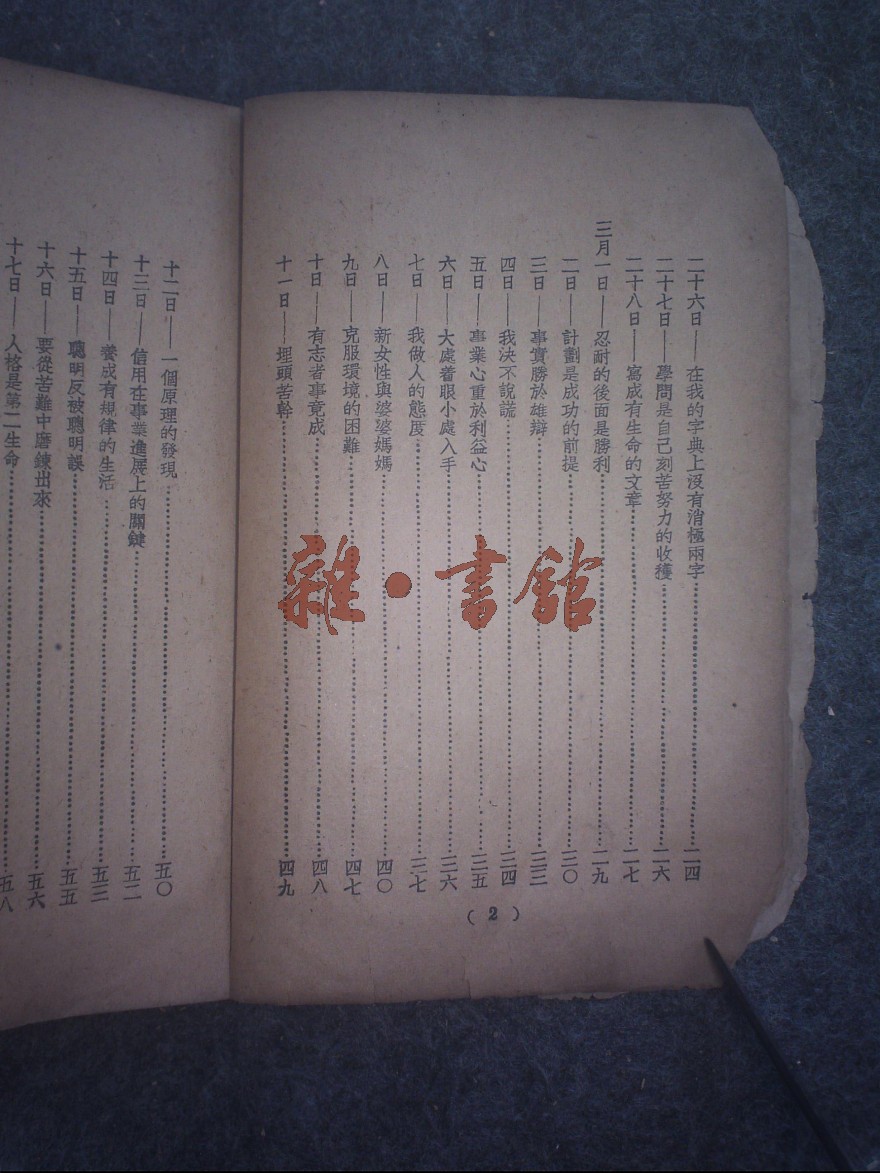 二十六日——在我的字典上沒有消極兩字……二四
二十七日——學問是自己刻苦努力的收穫……二六
二十八日——寫成有生命的文章……二七
三月一日——忍耐的後面是勝利……二九
二日——計劃是成功的前提……三〇
三日——事實勝於雄辯……三三
四日——我決不說謊……三四
五日——事業心重於利益心……三五
六日——大處着眼小處入手……三六
七日——我做人的態度……三七
八日——新女性與婆婆媽媽……四〇
九日——克服環境的困難……四七
十日——有志者事竟成……四八
十一日——埋頭苦幹……四九
( 2 )
十二日——一個原理的發現……五〇
十三日——信用在事業進展上的關鍵……五二
十四日——養成有規律的生活……五三
十五日——聰明反被聰明誤……五五
十六日——要從苦難中磨鍊出來……五六
十七日——人格是第二生命……五八
雜·書館